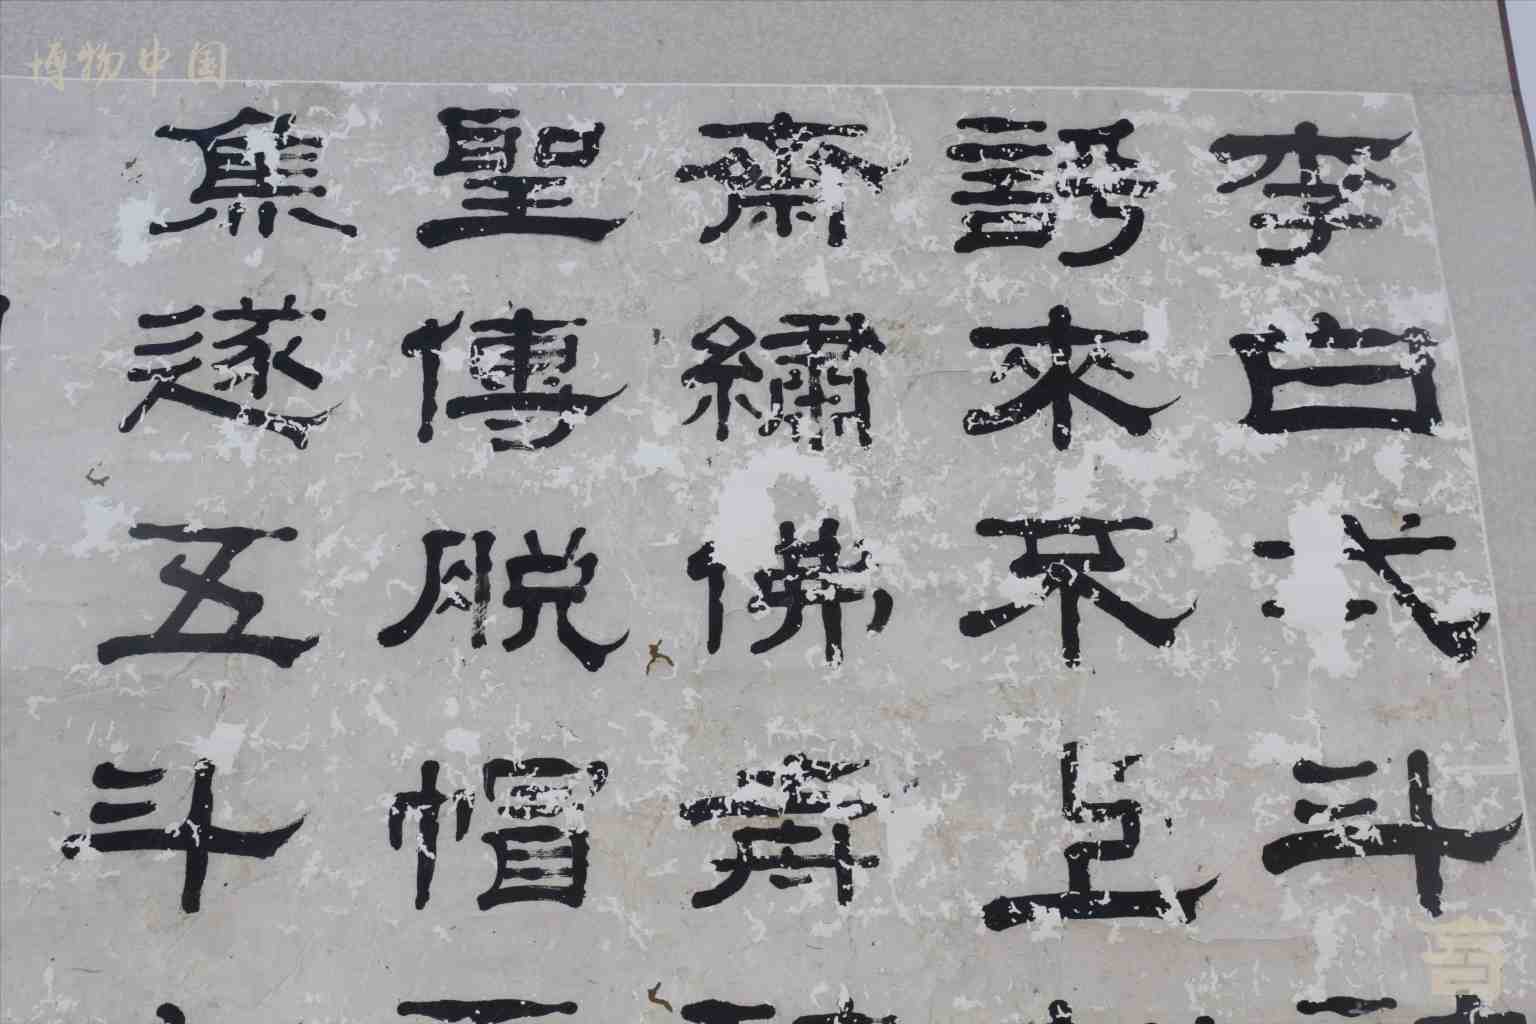 博物中国
李白弌斗
謼來不上
齋繡佛前
聖傳脫帽
焦遂五斗